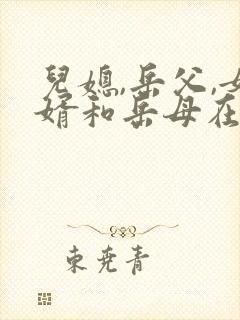 兒媳,岳父,女
婿和岳母在
東堯青